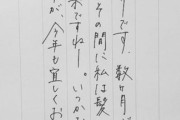 うです。数ヶ月が
その間に私は髪
来ですねー。いつか
が、今年も宜しくお